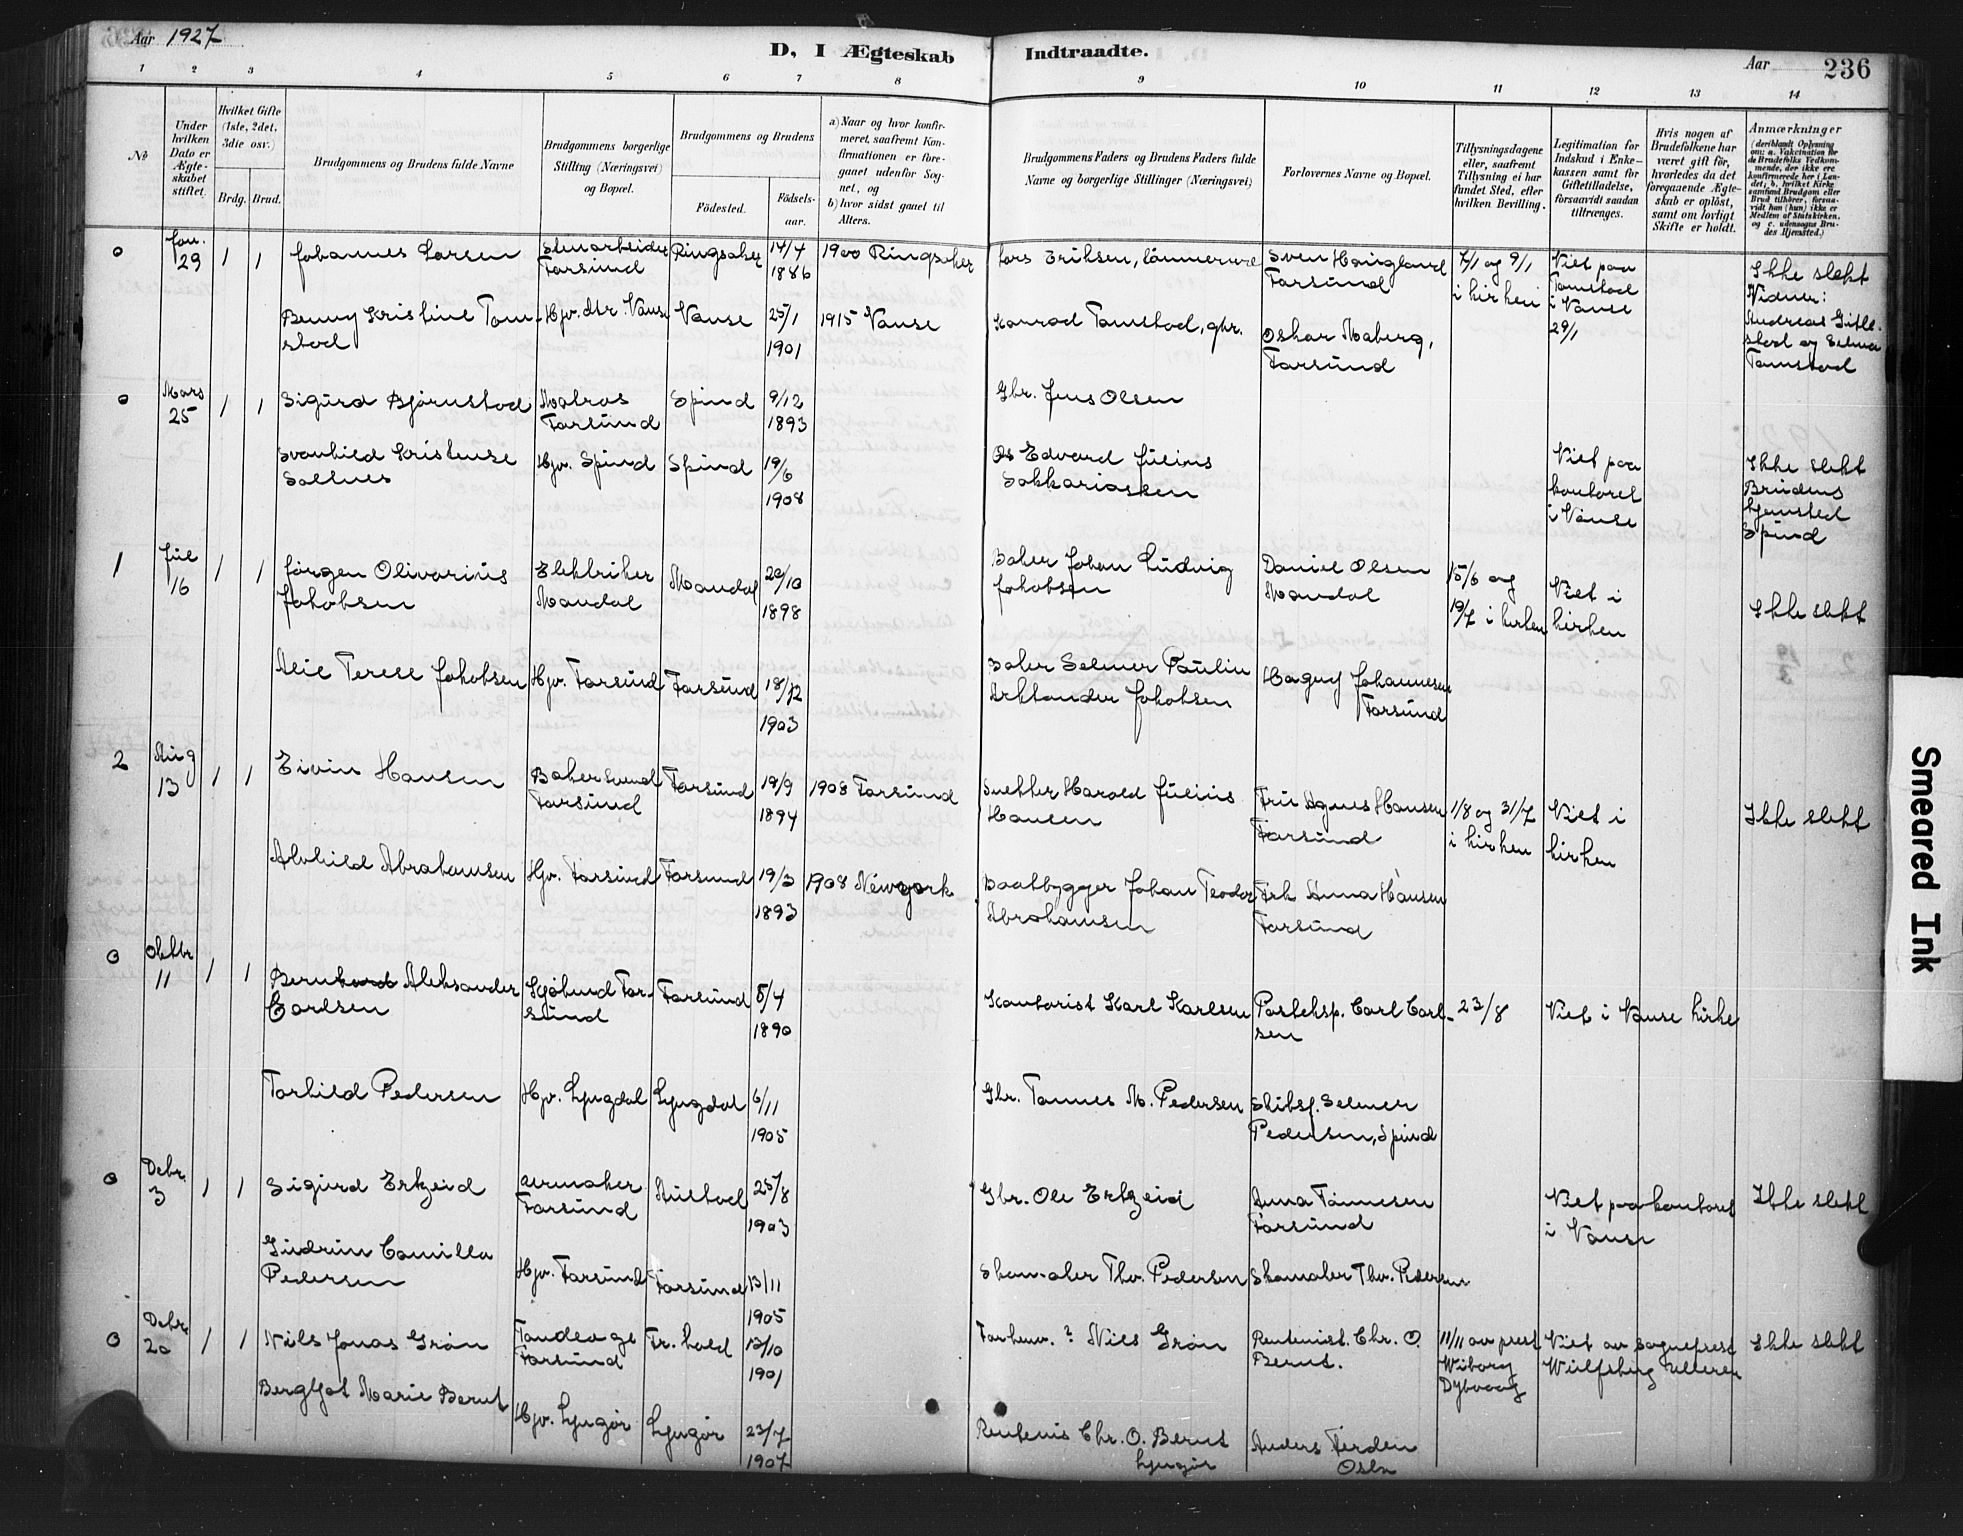 Aar 1927
D, I Ægteskab Indtraadte.
Aar 236
1 2 3 4 5 6 7 8 9 10 11 12 13 14
№
Under hvilken Dato er Ægteskabet stiftet.
Hvilket Gifte (1ste, 2det, 3die osv.)
Brdg. Brud.
Brudgommens og Brudens fulde Navne
Brudgommens borgerlige Stilling (Næringsvei) og Bopæl.
Brudgommens og Brudens
Födested.
Födsels-aar.
a) Naar og hvor konfirmeret, saafremt Konfirmationen er foregaaet udenfor Sognet, og
b) hvor sidst gaaet til Alters.
Brudgommens Faders og Brudens Faders fulde Navne og borgerlige Stillinger (Næringsvei)
Forlovernes Navne og Bopæl.
Tillysningsdagene eller, saafremt Tillysning ei har fundet Sted, efter hvilken Bevilling.
Legitimation for Indskud i Enkekassen samt for Giftetilladelse, forsaavidt saadan tiltrænges.
Hvis nogen af Brudefolkene har været gift för, hvorledes da det foregaaende Ægteskab er oplöst, samt om lovligt Skifte er holdt.
Anmærkninger
(deriblandt Oplysning om: a. Vakcination for de Brudefolks Vedkommende, der ikke ere konfirmerede her i Landet; b. hvilket Kirkesamfund Brudgom eller Brud tilhörer, forsaavidt han (hun) ikke er Medlem af Statskirken, og c. udensogns Brudes Hjemsted.)
0 Jan. 29 1 1 Johannes Larsen Stenarbeider Farsund Ringsaker 14/4 1886 1900 Ringsaker Lars Eriksen, Sven Haugland Farsund 7/1 og 9/1 i kirken Viet paa Tomstad i Vanse 29/1 Ikke slekt Vidner: Andreas Gitlestad og Selma Tomstad
Benny Kristine Tomstad Hjv. dtr. Vanse Vanse 25/1 1901 1915 Vanse Konrad Tomstad, gbr. Oskar Aaberg, Farsund
0 Mars 25 1 1 Sigurd Bjørnstad Matros Farsund Spind 9/12 1893 Gbr. Jens Olsen
Svanhild Kristense Sellnes Hjv. Spind Spind 19/6 1908 Edvard Julius Sakkariassen Viet paa kontoret i Vanse Ikke slekt Brudens hjemsted Spind
1 Jul 16 1 1 Jørgen Olivarius Jakobsen Elektriker Mandal Mandal 20/10 1898 Baker Johan Ludvig Jakobsen Daniel Olsen Mandal 15/6 og 19/7 i kirken Viet i kirken Ikke slekt
Alie Terese Jakobsen Hjv. Farsund Farsund 18/12 1903 Baker Selmer Paulin Arklander Jakobsen Hagny Johannesen Farsund
2 Aug 13 1 1 Eivin Hansen Bakersvend Farsund Farsund 19/9 1894 1908 Farsund Snekker Harald Julius Hansen Fru Agnes Hansen Farsund 1/8 og 31/7 i kirken Viet i kirken Ikke slekt
Alvhild Abrahamsen Hjv. Farsund Farsund 19/3 1893 1908 Newyork Baatbygger Johan Teodor Abrahamsen Frk Anna Hansen Farsund
0 Oktbr 11 1 1 Bernhard Aleksander Carlsen Sjømand Farsund Farsund 5/4 1890 Kontorist Karl Karlsen Posteksp. Carl Carlsen 23/8 Viet i Vanse kirke
Torhild Pedersen Hjv. Lyngdal Lyngdal 6/11 1905 Gbr. Tønnes M. Pedersen Skibsf. Selmer Pedersen, Spind
0 Debr. 3 1 1 Sigurd Ertzeid urmaker Farsund Austad 25/8 1903 Gbr. Ole Ertzeid Anna Tønnesen Farsund Viet paa kontoret i Vanse Ikke slekt
Gudrun Camilla Pedersen Hjv. Farsund Farsund 13/11 1905 Skomaker Thv. Pedersen Skomaker Thv. Pedersen
0 Debr. 20 1 1 Nils Jonas Grøn Tandlæge Farsund Fr. hald 13/10 1901 Nils Grøn Rentenist Chr. O. Bernt. 11/11 av prest Wiborg Dybvaag Viet av sogneprest Wulfsberg Ullern Ikke slekt
Bergljot Marie Bernt Hjv. Lyngør Lyngør 23/7 1907 Rentenis Chr. O. Bernt Lyngør Anders Ferden Oslo
Smeared Ink